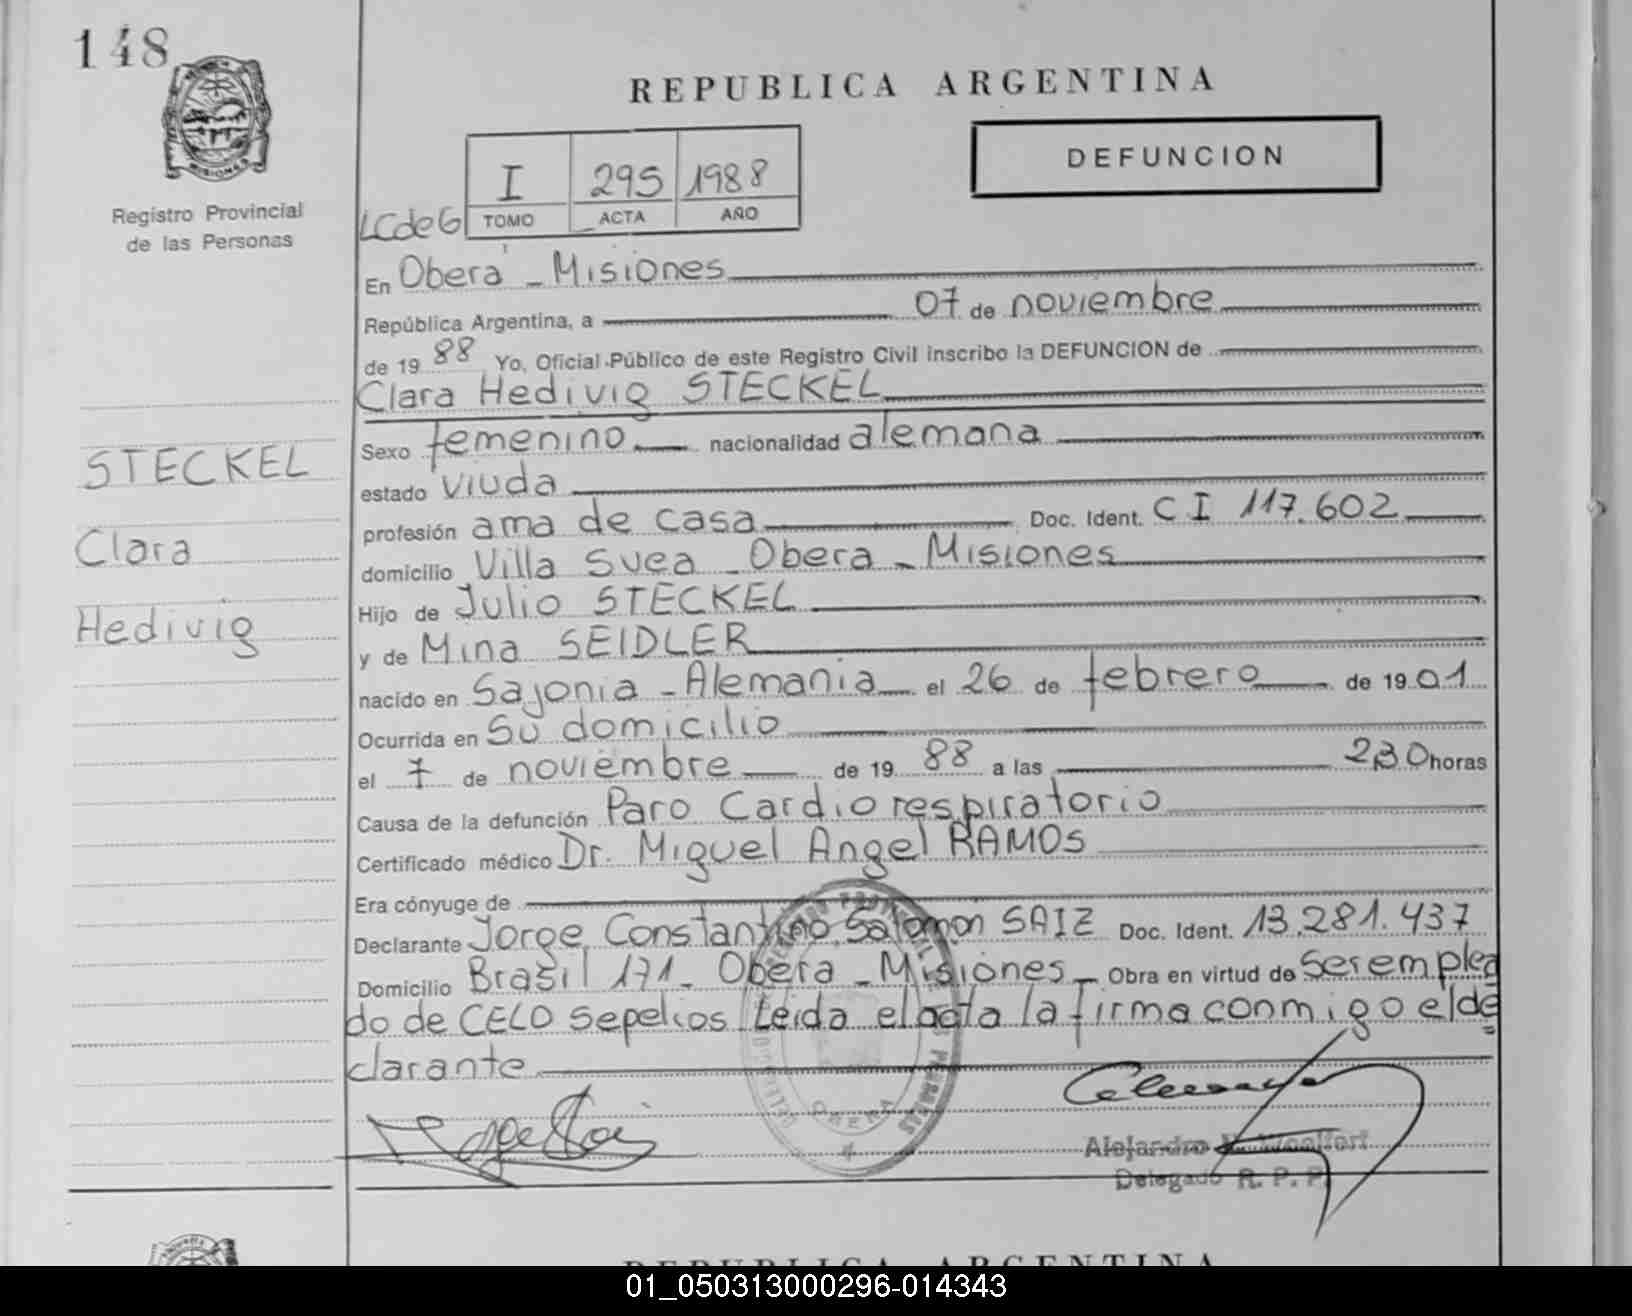 148
REPUBLICA ARGENTINA
DEFUNCION
I 295 1988
TOMO ACTA AÑO
LCdeG
MISIONES
Registro Provincial
de las Personas
En Obera - Misiones
República Argentina, a 07 de noviembre
de 19 88 Yo, Oficial Público de este Registro Civil inscribo la DEFUNCION de
Clara Hedivig STECKEL
Sexo femenino nacionalidad alemana
STECKEL
estado viuda
profesión ama de casa Doc. Ident. CI 117.602
Clara
domicilio Villa Svea - Obera - Misiones
Hijo de Julio STECKEL
Hedivig
y de Mina SEIDLER
nacido en Sajonia - Alemania el 26 de febrero de 19 01
Ocurrida en Su domicilio
el 7 de noviembre de 19 88 a las 2,30 horas
Causa de la defunción Paro Cardiorespiratorio
Certificado médico Dr. Miguel Angel RAMOS
Era cónyuge de
Declarante Jorge Constantino Salomon SAIZ Doc. Ident. 13.281.437
Domicilio Brasil 171 - Obera - Misiones - Obra en virtud de Ser emplea
do de CELO Sepelios Leida el acta la firma conmigo el de
clarante
OBERA
Alejandro
Delegado R. P. P.
REPUBLICA ARGENTINA
01_050313000296-014343